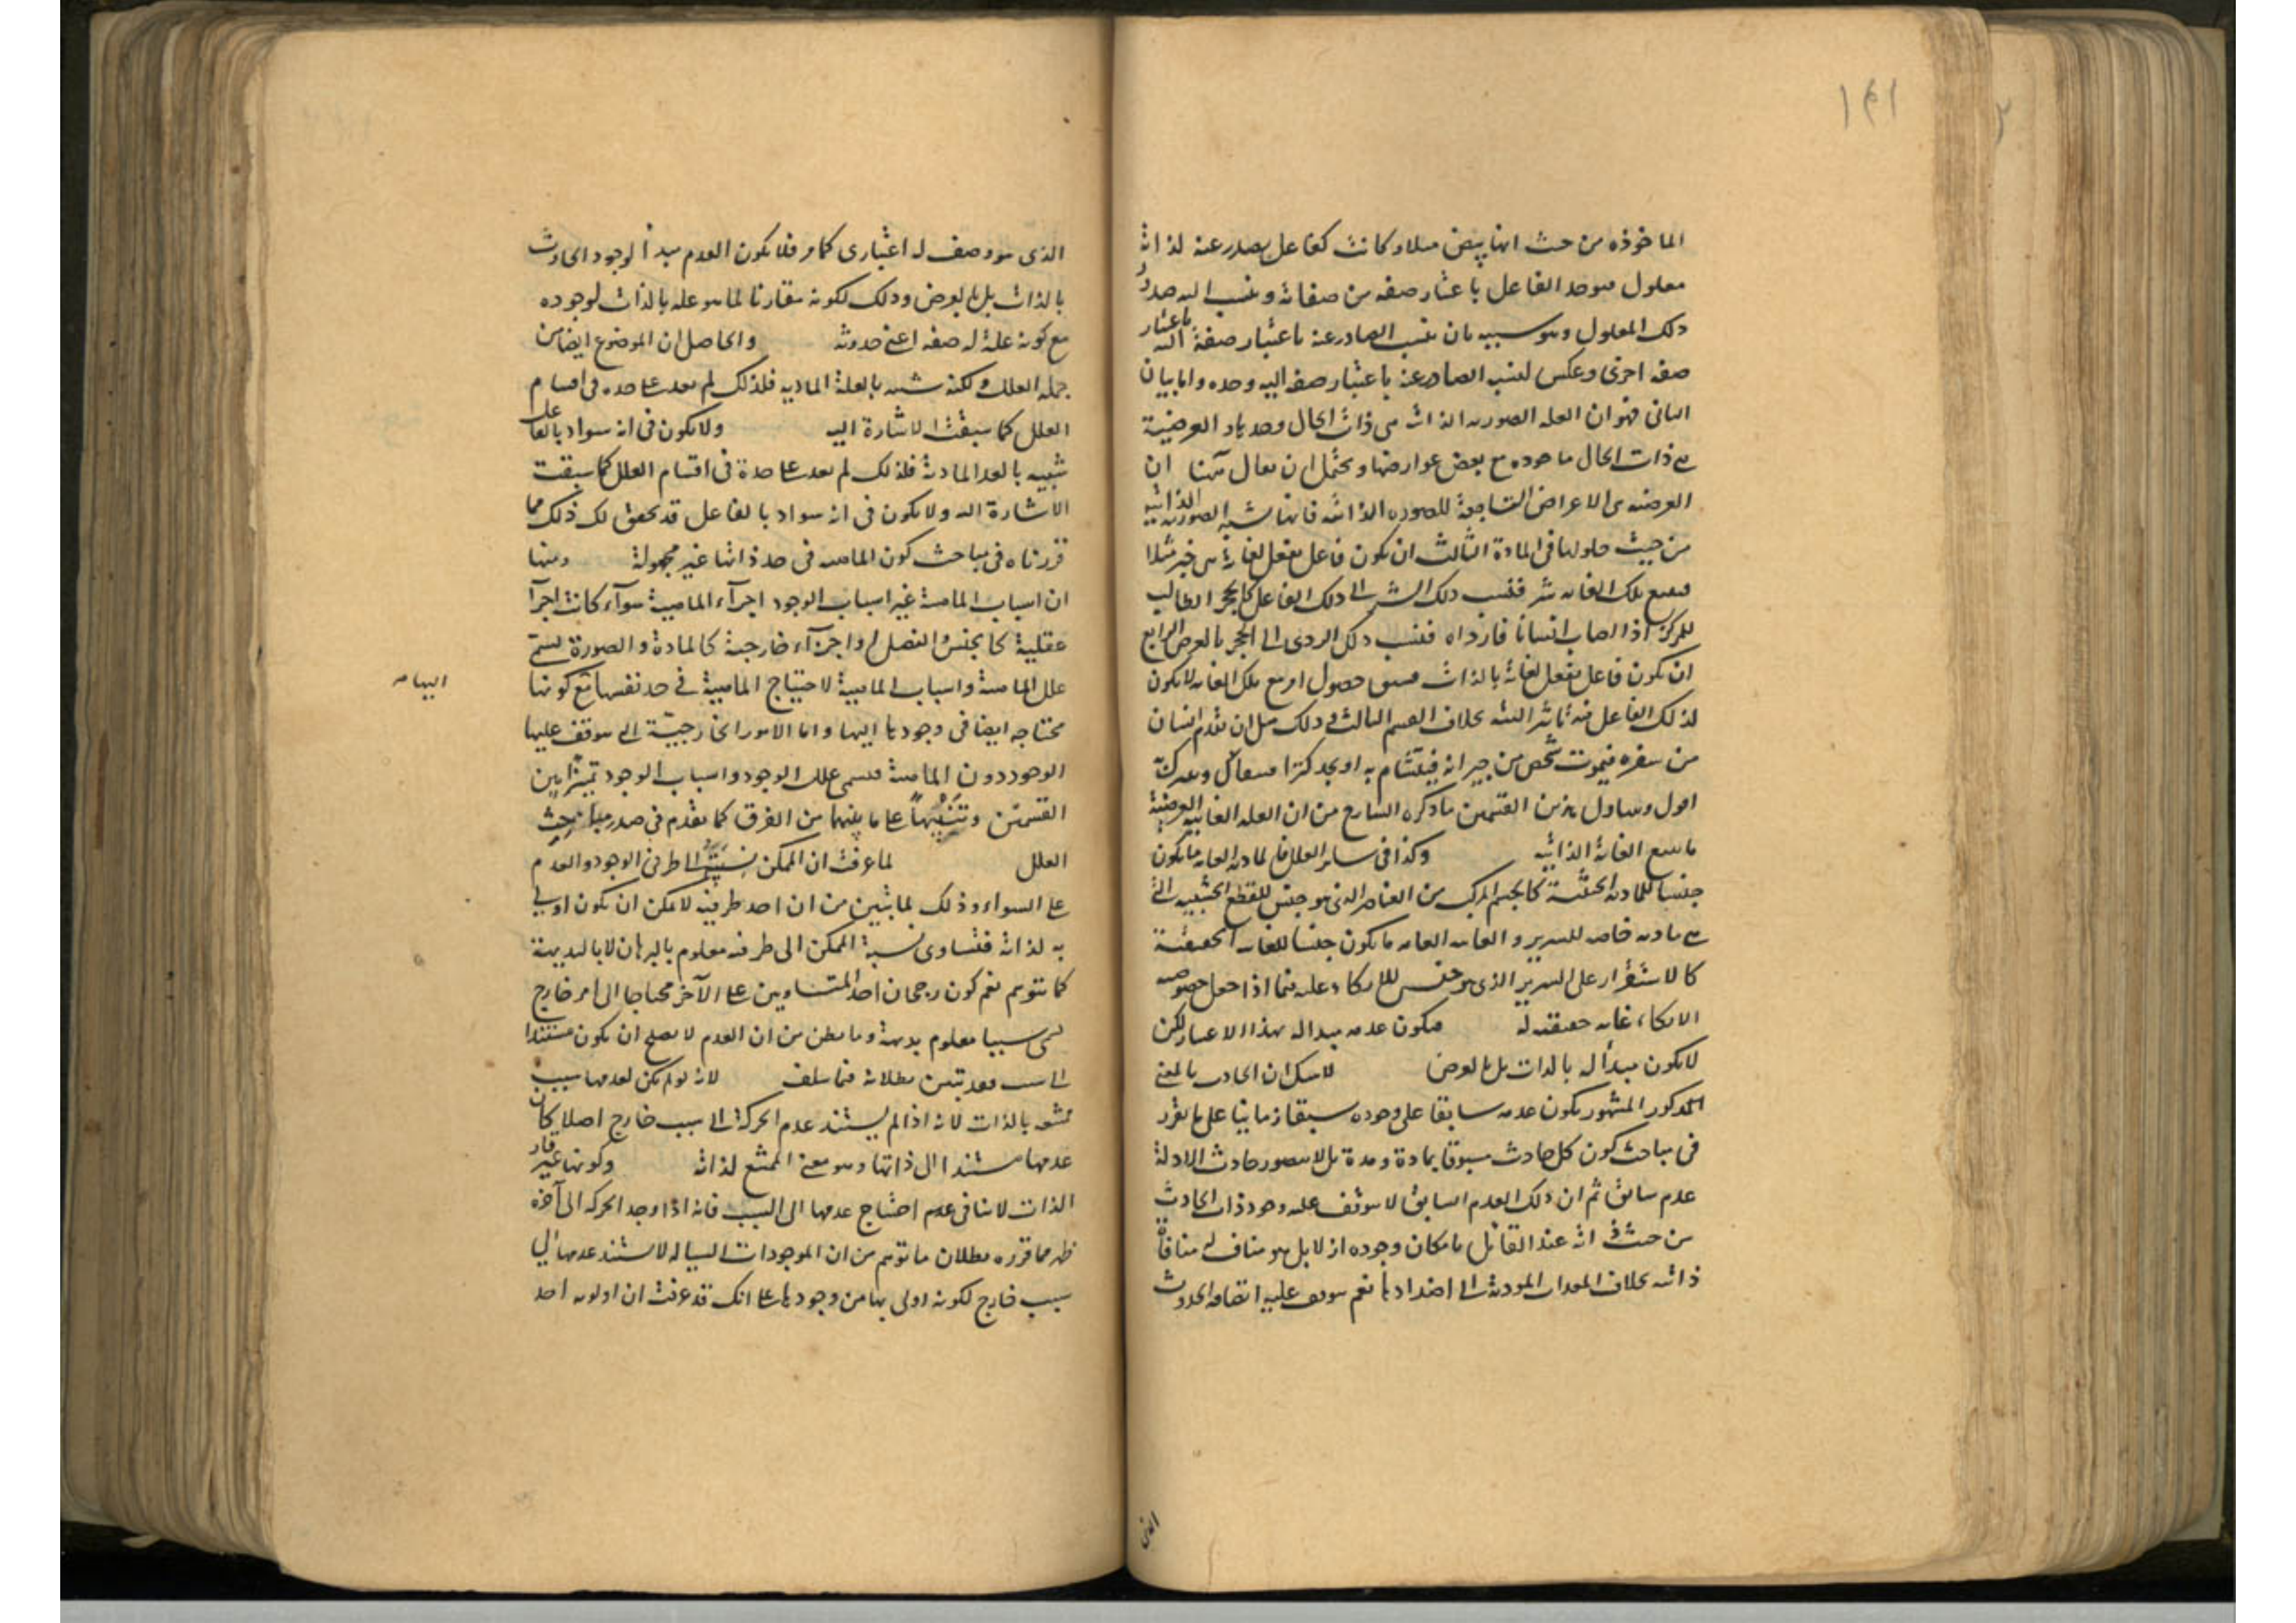 ١٤١
الماخوذه من حيث انها بيض مثلا وكانت كفاعل يصدر عنه لذاته
معلول فيوخذ الفاعل باعتبار صفه من صفاته وينسب اليه صدور
ذلك المعلول وهو سببيه بان ينسب الصادر عنه باعتبار صفة اليه باعتبار
صفه اخرى وعكس لنسب الصادر عنه باعتبار صفه اليه وحده واما بيان
الثانى فهو ان العله الصوريه الذاتيه هى ذات الحال وحدها والعرضية
هى ذات الحال ماخوذه مع بعض عوارضها ويحتمل ان يقال هنا ان
العرضيه هى الاعراض التابعة للصوره الذاتيه فانها تشبه الصوريه الذاتيه
من حيث حلولها فى المادة الثالث ان يكون فاعل يفعل لغاية هى خير مثلا
فيتبع تلك الغايه شر فينسب ذلك الشر الى ذلك الفاعل كالحجر الطالب
للمركز اذا اصاب انسانا فارداه فينسب ذلك الردى الى الحجر بالعرض الرابع
ان يكون فاعل يفعل لغاية بالذات فيتفق حصول امر مع تلك الغايه لا يكون
لذلك الفاعل فيه تاثير البته بخلاف القسم الثالث وذلك مثل ان يقدم انسان
من سفره فيموت شخص من جيرانه فيتشام به او يجد كنزا
اقول ويتناول هذين القسمين ما ذكره الشارح من ان العله الغائيه العرضية
ما يتبع الغاية الذاتيه وكذا فى سائر العلل فالماده العامه ما يكون
جنسا للماده الحقيقية كالجسم المركب من العناصر الذى هو جنس للقطع الخشبيه التى
هى ماده خاصه للسرير والغايه العامه ما يكون جنسا للغايه الحقيقية
كالاستقرار على السرير الذى هو جنس للاتكاء عليه فيما اذا جعل خصوصيه
الاتكاء غايه حقيقيه له فيكون عدمه مبدا له بهذا الاعتبار لكن
لا يكون مبدأ له بالذات بل بالعرض لا شك ان الحادث بالمعنى
المذكور المشهور يكون عدمه سابقا على وجوده سبقا زمانيا على ما تقرر
فى مباحث كون كل حادث مسبوقا بمادة ومدة بل لا يتصور حادث الا وله
عدم سابق ثم ان ذلك العدم السابق لا يتوقف عليه وجود ذات الحادث
من حيث هو ذاته عند القائل بامكان وجوده ازلا بل هو مناف له منافاة
ذاتيه بخلاف المعدات المودية الى اضدادها نعم يتوقف عليه اتصافه بالحدوث
الذى
الذى هو وصف له اعتبارى كما مر فلا يكون العدم مبدأ لوجود الحادث
بالذات بل بالعرض وذلك لكونه مقارنا لما هو عله بالذات لوجوده
مع كونه علة لصفه اعنى حدوثه والحاصل ان الموضوع ايضا من
جمله العلل ولكنه شبيه بالعلة الماديه فلذلك لم يعد على حده فى اقسام
العلل كما سبقت الاشارة اليه ولا يكون فى انه سواد بالفاعل
شبيه بالعلة المادية فلذلك لم يعد على حدة فى اقسام العلل كما سبقت
الاشارة اليه ولا يكون فى انه سواد بالفاعل قد تحقق لك ذلك مما
قررناه فى مباحث كون الماهيه فى حد ذاتها غير مجعولة ومنها
ان اسباب الماهية غير اسباب الوجود اجزآء الماهية سوآء كانت اجزآ
عقلية كالجنس والفصل او اجزآء خارجية كالمادة والصورة تسمى
علل الماهية واسباب الماهية لاحتياج الماهية فى حد نفسها مع كونها
محتاجه ايضا فى وجودها اليها واما الامور الخارجيّة التى يتوقف عليها
الوجود دون الماهية فتسمى علل الوجود واسباب الوجود تمييزا بين
القسمين وتنبيهاً على ما بينهما من الفرق كما تقدم فى صدر مباحث
العلل لما عرفت ان الممكن نسبته الى طرفى الوجود والعدم
على السواء وذلك لما تبين من ان احد طرفيه لا يمكن ان يكون اولى
به لذاته فتساوى نسبة الممكن الى طرفيه معلوم بالبرهان لا بالبديهة
كما يتوهم نعم كون رجحان احد المتساويين على الآخر محتاجا الى امر خارج
يسمى سببا معلوم بديهة وما يظن من ان العدم لا يصلح ان يكون مستندا
الى سبب فقد تبين بطلانه فيما سلف لانه لو لم يكن لعدمها سبب
ممتنعه بالذات لانه اذا لم يستند عدم الحركة الى سبب خارج اصلا كان
عدمها مستندا الى ذاتها وهو معنى الممتنع لذاته وكونها غير قار
الذات لا ينافى عدم احتياج عدمها الى السبب فانه اذا وجد الحركه الى آخره
ظهر مما قرره بطلان ما توهم من ان الموجودات السياله لا يستند عدمها الى
سبب خارج لكونه اولى بها من وجودها على انك قد عرفت ان اولويه احد
اليهامه